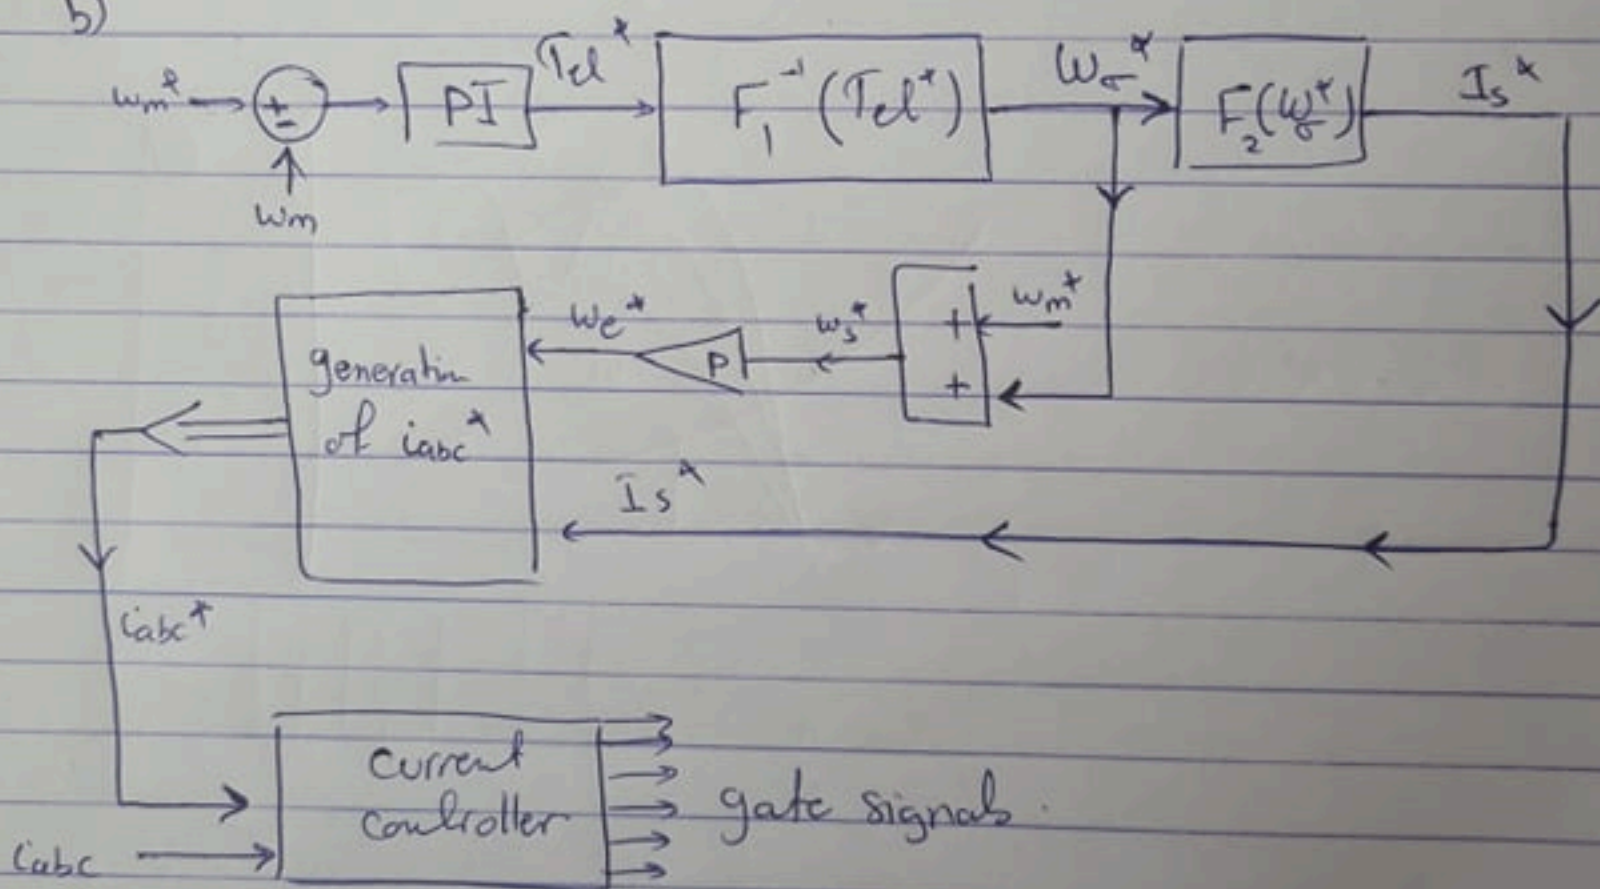 b)
ωm* → ± → PI → Tel* → F₁⁻¹(Tel*) → ωσ* → F₂(ωσ*) → Is*
-
ωm
generation of iabc*
ωe*
P
ωs*
+ ωm*
+
Is*
iabc*
current controller
gate signals.
iabc